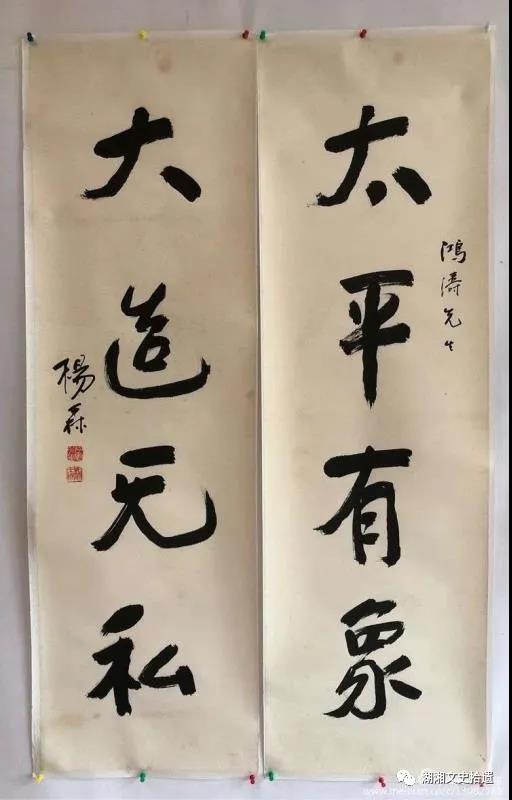 太平有象
鴻濤先生
大造无私
楊森
湖湘文史拾遗